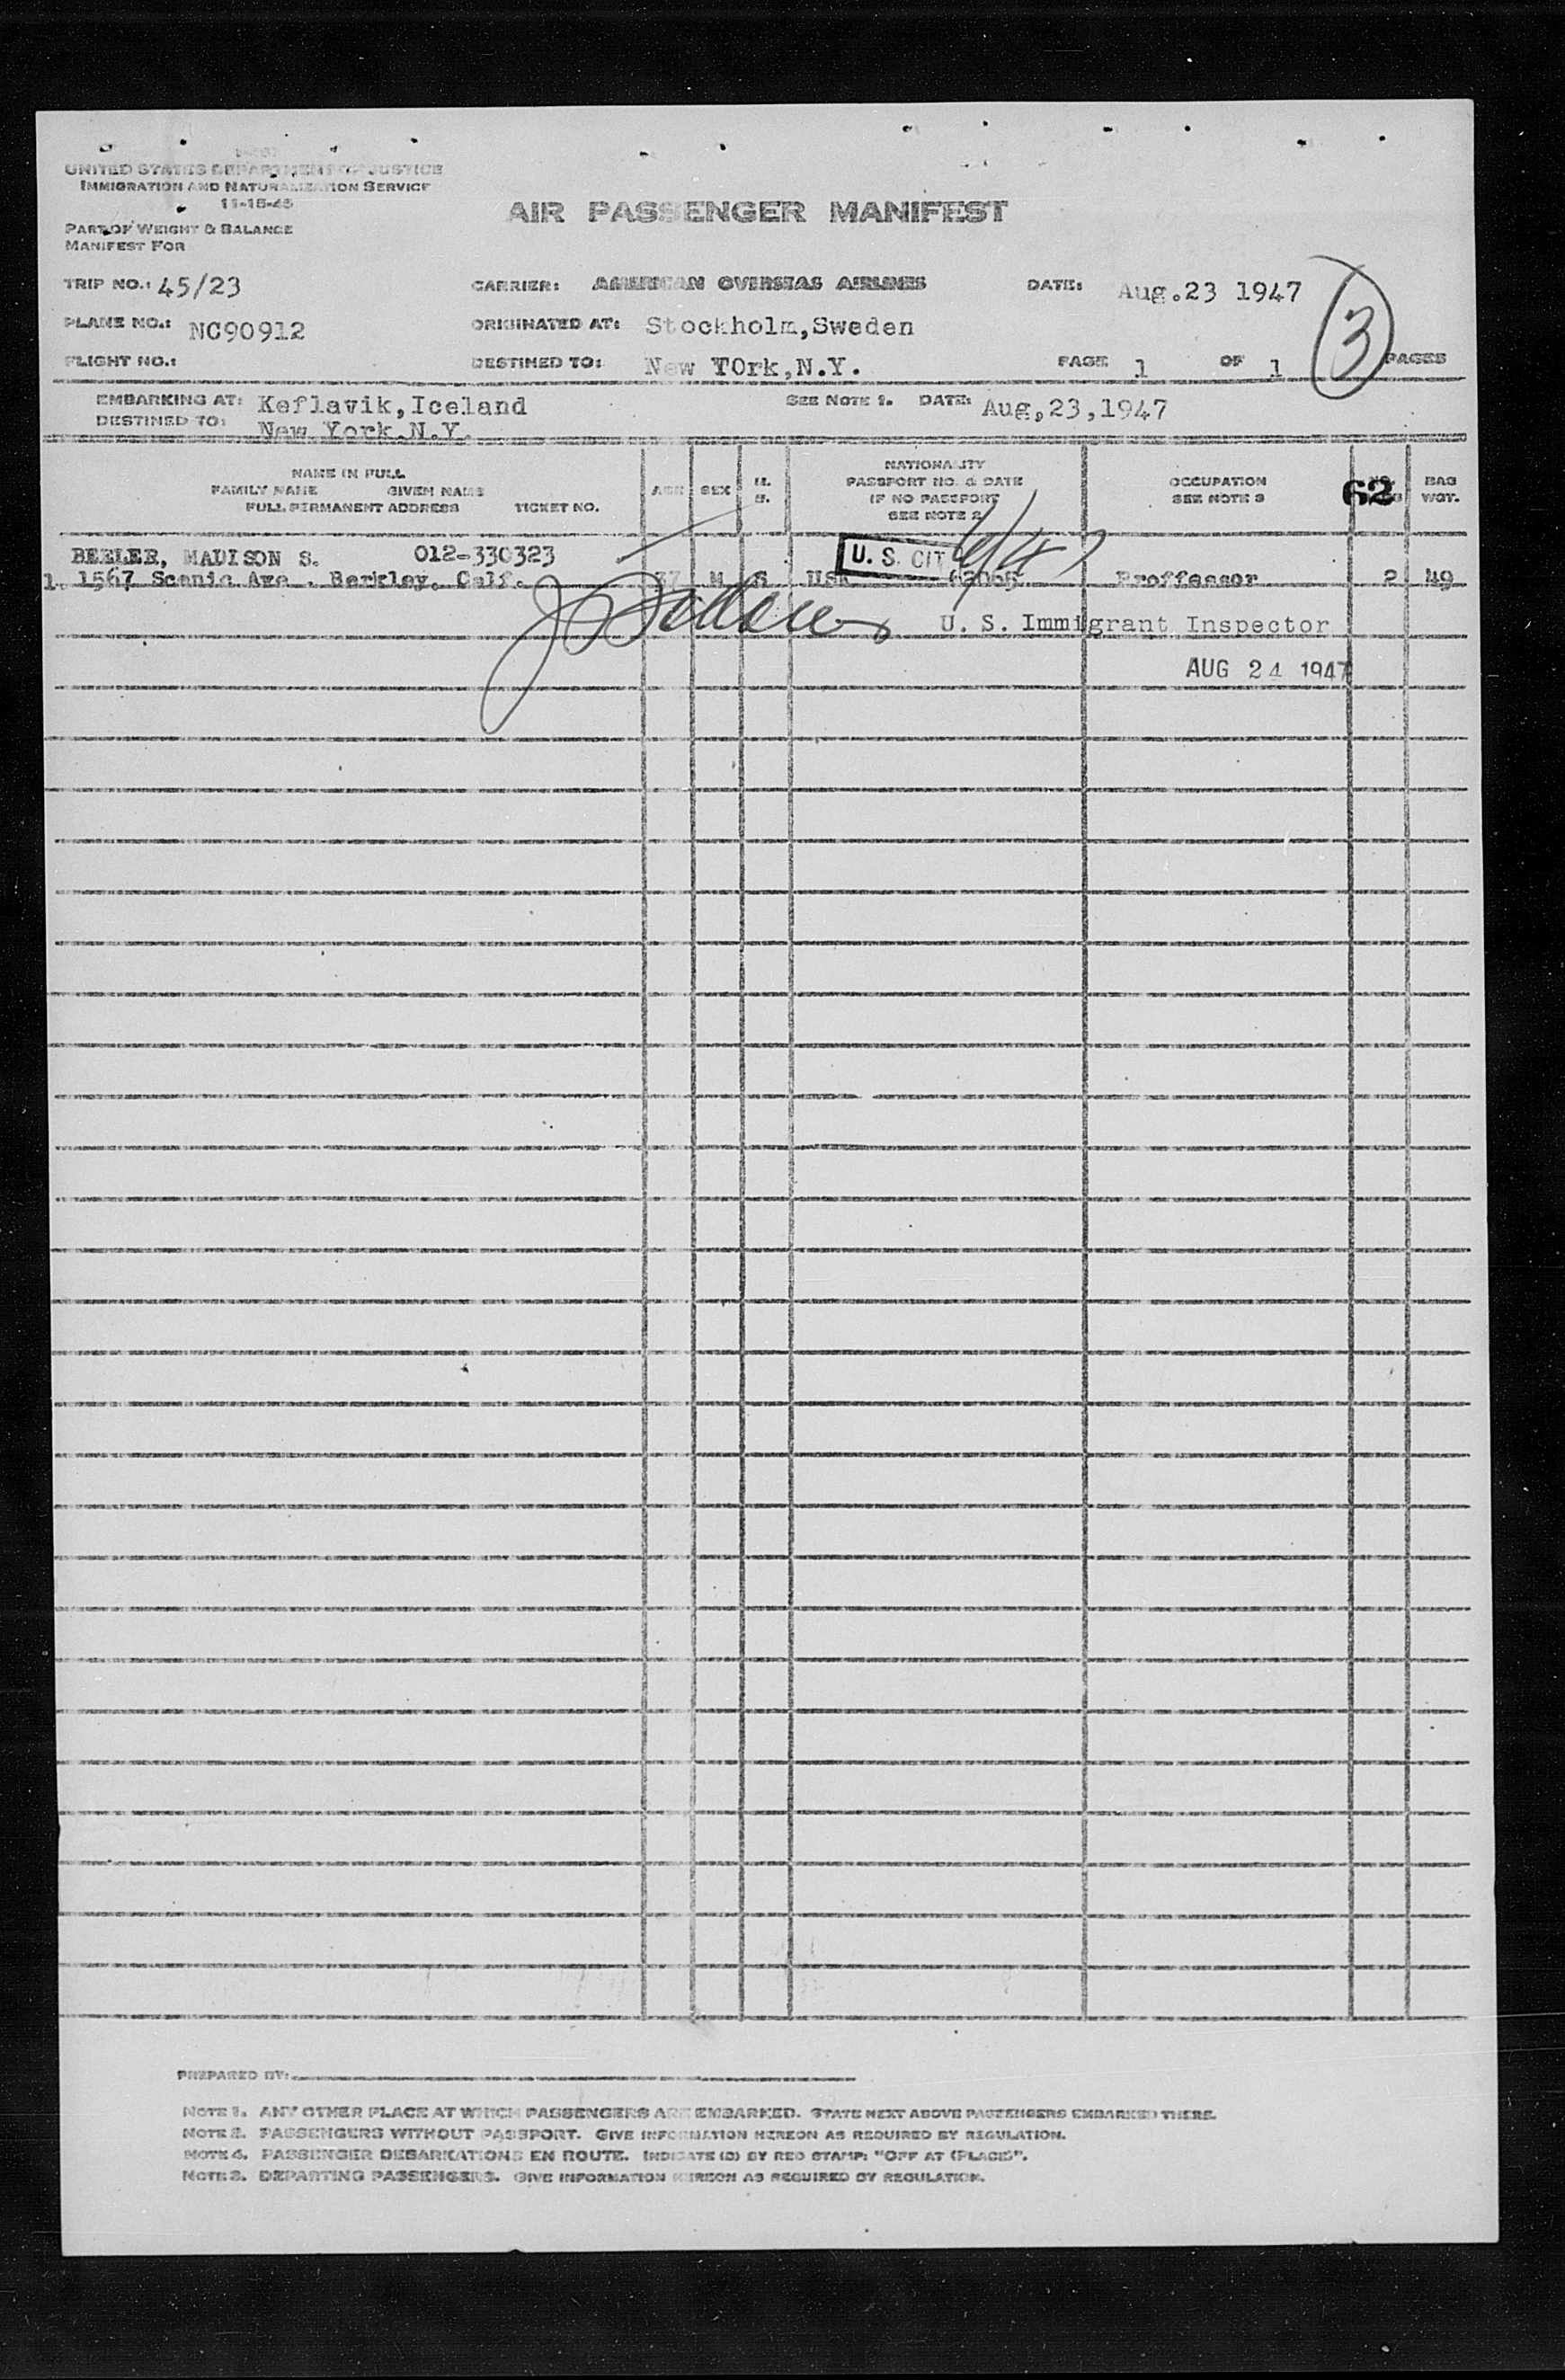 UNITED STATES DEPARTMENT OF JUSTICE
IMMIGRATION AND NATURALIZATION SERVICE
11-15-45
PART OF WEIGHT & BALANCE
MANIFEST FOR
AIR PASSENGER MANIFEST
TRIP NO.: 45/23 CARRIER: AMERICAN OVERSEAS AIRLINES DATE: Aug.23 1947
PLANE NO.: NC90912 ORIGINATED AT: Stockholm,Sweden
3
FLIGHT NO.: DESTINED TO: New YOrk,N.Y. PAGE 1 OF 1 PAGES
EMBARKING AT: Keflavik,Iceland SEE NOTE 1. DATE: Aug,23,1947
DESTINED TO: New York.N.Y.
NAME IN FULL
FAMILY NAME GIVEN NAME
FULL PERMANENT ADDRESS TICKET NO.
AGE SEX M. S.
NATIONALITY
PASSPORT NO. & DATE
IF NO PASSPORT
SEE NOTE 2
OCCUPATION
SEE NOTE 3
62
BAG
WGT.
BEELER, MADISON S. 012-330323 U. S. CIT
1. 1567 Scenic Ave. Berkley, Calf. 37 M S USA Proffessor 2 49
U. S. Immigrant Inspector
AUG 24 1947
PREPARED BY:
NOTE 1. ANY OTHER PLACE AT WHICH PASSENGERS ARE EMBARKED. STATE NEXT ABOVE PASSENGERS EMBARKED THERE.
NOTE 2. PASSENGERS WITHOUT PASSPORT. GIVE INFORMATION HEREON AS REQUIRED BY REGULATION.
NOTE 4. PASSENGER DEBARKATIONS EN ROUTE. INDICATE (D) BY RED STAMP: "OFF AT (PLACE)".
NOTE 3. DEPARTING PASSENGERS. GIVE INFORMATION HEREON AS REQUIRED BY REGULATION.